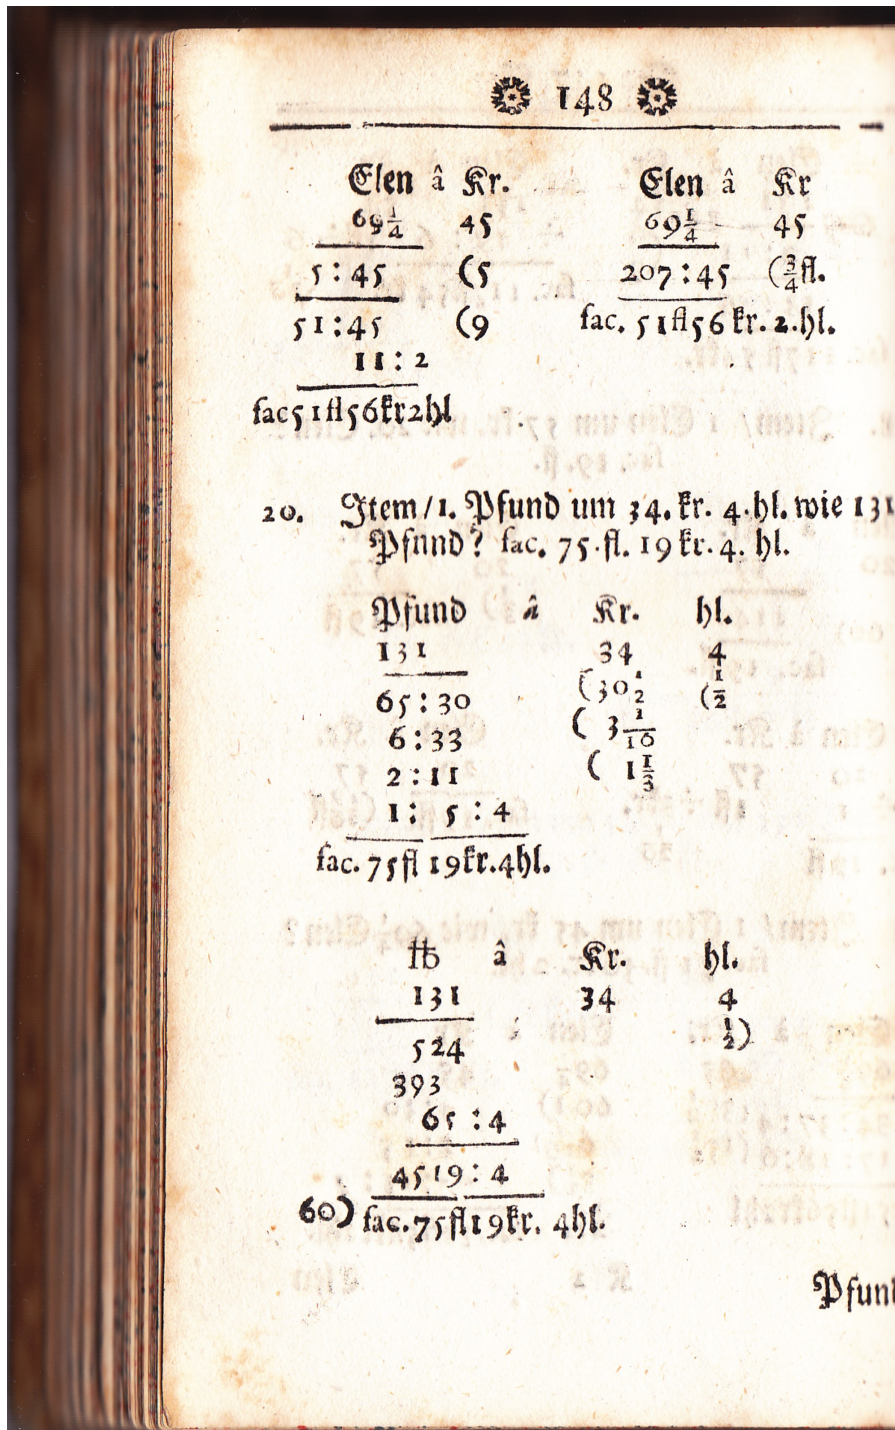 148
Elen â Kr.
69 1/4 45
5 : 45 (5
51 : 45 (9
11 : 2
fac 51 fl 56 kr 2 hl
Elen â Kr
69 1/4 45
207 : 45 (3/4 fl.
fac. 51 fl 56 kr. 2. hl.
20. Item / 1. Pfund um 34. kr. 4. hl. wie 131
Pfnnd? fac. 75. fl. 19 kr. 4. hl.
Pfund â Kr. hl.
131 34 4
65 : 30 (30 1/2 (1/2
6 : 33 ( 3 1/10
2 : 11 ( 1 1/3
1 : 5 : 4
fac. 75 fl 19 kr. 4 hl.
℔ â Kr. hl.
131 34 4
524 1/2)
393
65 : 4
4519 : 4
60) fac. 75 fl 19 kr. 4 hl.
Pfun